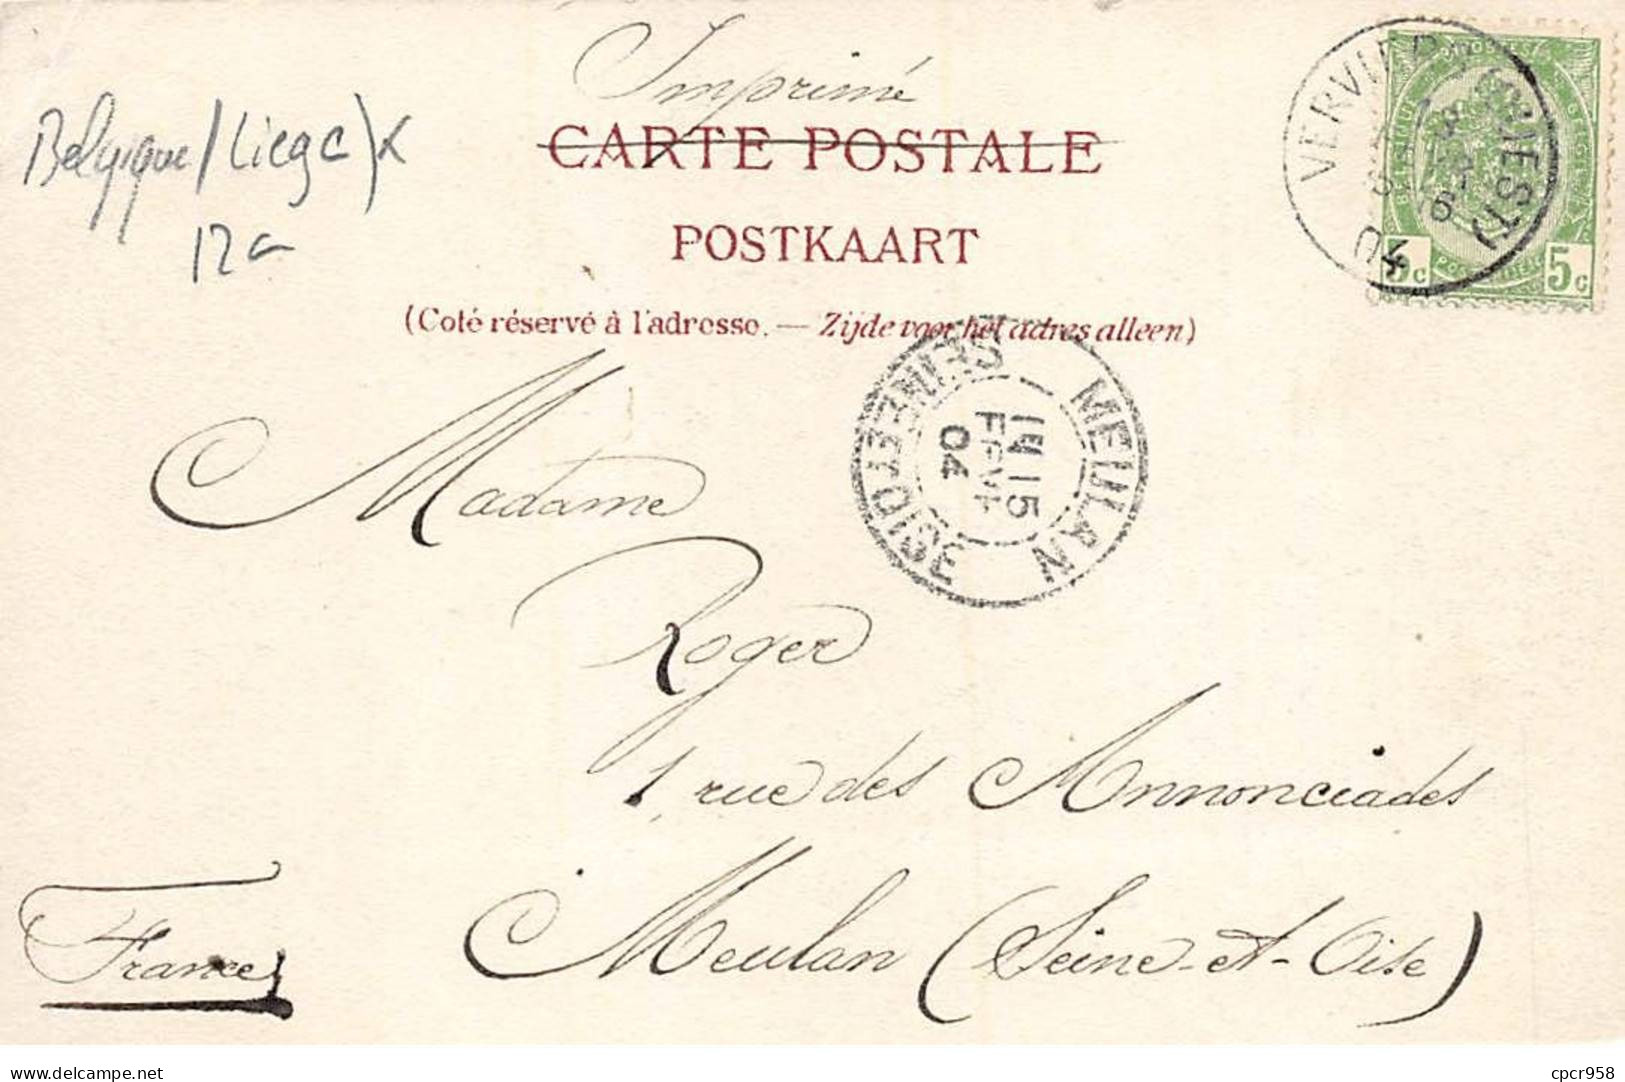 Imprimé
Belgique/Liège)x
CARTE POSTALE
POSTKAART
(Coté réservé à l'adresse. — Zijde voor het adres alleen)
VERVIERS (OUEST)
04
5c 5c
Madame
Roger
1, rue des Annonciades
Meulan (Seine-et-Oise)
France
MEULAN
SEINE ET OISE
15
FEVR
04
www.delcampe.net
cpcr958